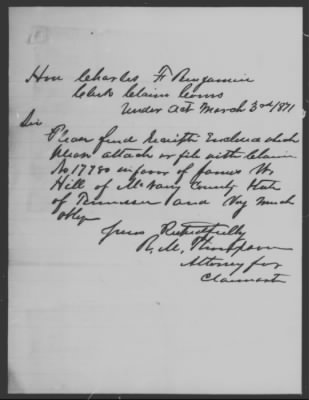 Hon Charles F Benjamin
Clerk Claim Comrs
Under Act March 3rd 1871
Sir
Please find Receipts Enclosed which
please attach or file with Claim
No 17780 in favor of James W
Hill of McNary County State
of Tennessee and Very much
oblige
yours Respectfully
R. M. Thompson
Attorney for
Claimant